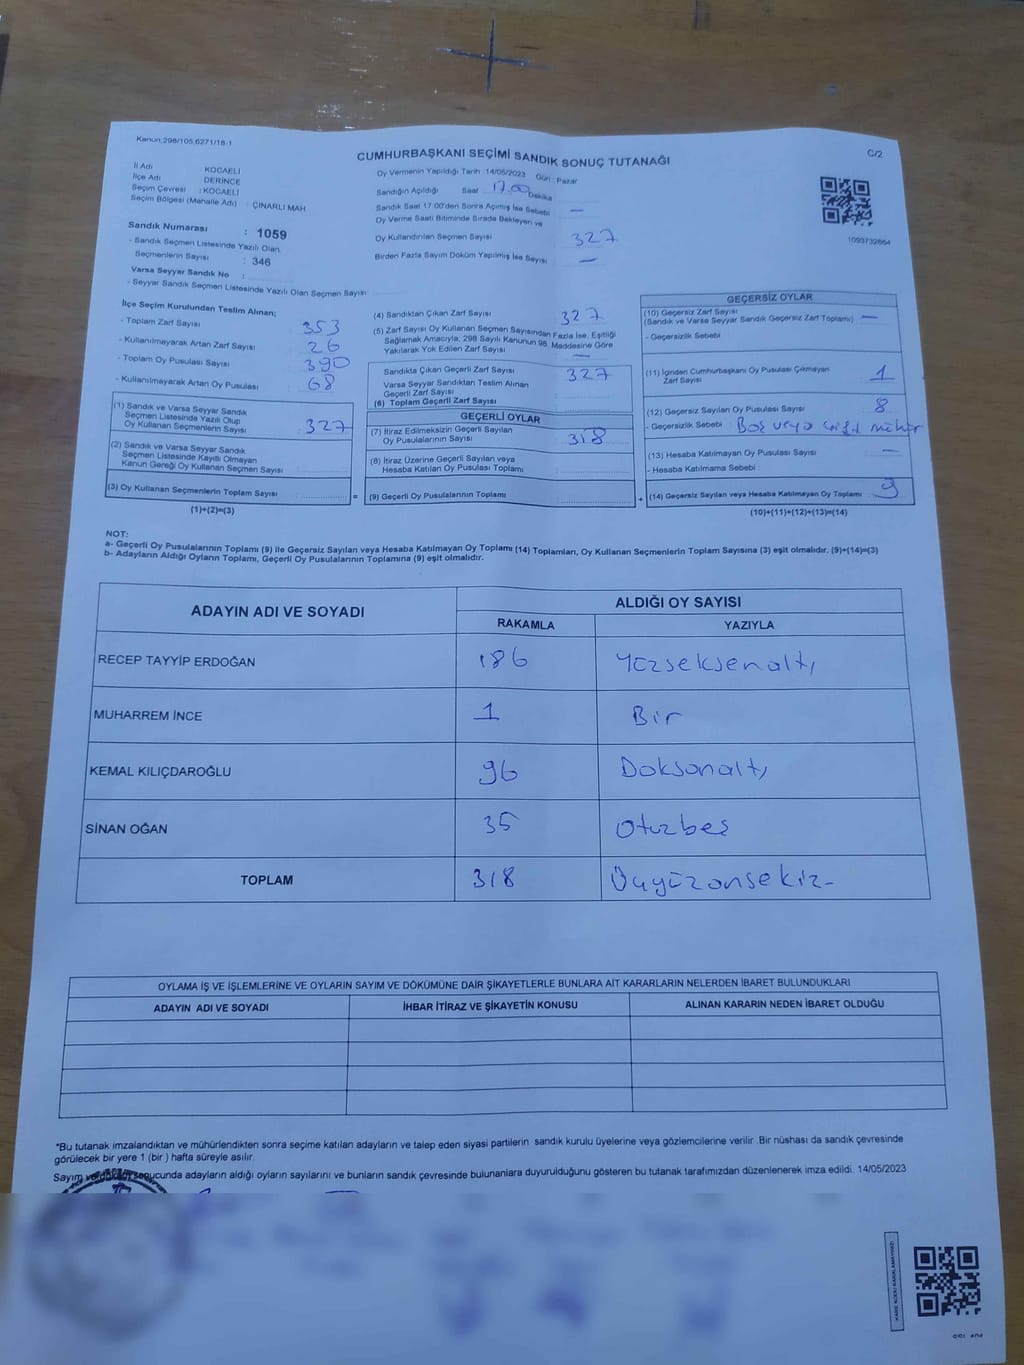 Kanun:298/105.6271/18-1
CUMHURBAŞKANI SEÇİMİ SANDIK SONUÇ TUTANAĞI
C/2
İl Adı : KOCAELİ
İlçe Adı : DERİNCE
Seçim Çevresi : KOCAELİ
Seçim Bölgesi (Mahalle Adı) : ÇINARLI MAH
Sandık Numarası : 1059
- Sandık Seçmen Listesinde Yazılı Olan
Seçmenlerin Sayısı : 346
Varsa Seyyar Sandık No :
- Seyyar Sandık Seçmen Listesinde Yazılı Olan Seçmen Sayısı:
Oy Vermenin Yapıldığı Tarih :14/05/2023 Gün : Pazar
Sandığın Açıldığı Saat 17.00 Dakika
Sandık Saat 17:00'den Sonra Açımış İse Sebebi —
Oy Verme Saati Bitiminde Sırada Bekleyen ve
Oy Kullandırılan Seçmen Sayısı 327
Birden Fazla Sayım Döküm Yapılmış İse Sayısı —
1093732664
İlçe Seçim Kurulundan Teslim Alınan;
- Toplam Zarf Sayısı : 353
- Kullanılmayarak Artan Zarf Sayısı : 26
- Toplam Oy Pusulası Sayısı : 390
- Kullanılmayarak Artan Oy Pusulası : 68
(1) Sandık ve Varsa Seyyar Sandık
Seçmen Listesinde Yazılı Olup
Oy Kullanan Seçmenlerin Sayısı : 327
(2) Sandık ve Varsa Seyyar Sandık
Seçmen Listesinde Kayıtlı Olmayan
Kanun Gereği Oy Kullanan Seçmen Sayısı :
(3) Oy Kullanan Seçmenlerin Toplam Sayısı :
(1)+(2)=(3)
(4) Sandıktan Çıkan Zarf Sayısı : 327
(5) Zarf Sayısı Oy Kullanan Seçmen Sayısından Fazla İse, Eşitliği
Sağlamak Amacıyla; 298 Sayılı Kanunun 98. Maddesine Göre
Yakılarak Yok Edilen Zarf Sayısı —
Sandıkta Çıkan Geçerli Zarf Sayısı : 327
Varsa Seyyar Sandıktan Teslim Alınan
Geçerli Zarf Sayısı :
(6) Toplam Geçerli Zarf Sayısı :
GEÇERLİ OYLAR
(7) İtiraz Edilmeksizin Geçerli Sayılan
Oy Pusulalarının Sayısı : 318
(8) İtiraz Üzerine Geçerli Sayılan veya
Hesaba Katılan Oy Pusulası Toplamı :
= (9) Geçerli Oy Pusulalarının Toplamı :
GEÇERSİZ OYLAR
(10) Geçersiz Zarf Sayısı
(Sandık ve Varsa Seyyar Sandık Geçersiz Zarf Toplamı) : —
- Geçersizlik Sebebi
(11) İçinden Cumhurbaşkanı Oy Pusulası Çıkmayan
Zarf Sayısı : 1
(12) Geçersiz Sayılan Oy Pusulası Sayısı : 8
- Geçersizlik Sebebi : Boş veya çift mühür
(13) Hesaba Katılmayan Oy Pusulası Sayısı : —
- Hesaba Katılmama Sebebi :
+ (14) Geçersiz Sayılan veya Hesaba Katılmayan Oy Toplamı : 9
(10)+(11)+(12)+(13)=(14)
NOT:
a- Geçerli Oy Pusulalarının Toplamı (9) ile Geçersiz Sayılan veya Hesaba Katılmayan Oy Toplamı (14) Toplamları, Oy Kullanan Seçmenlerin Toplam Sayısına (3) eşit olmalıdır. (9)+(14)=(3)
b- Adayların Aldığı Oyların Toplamı, Geçerli Oy Pusulalarının Toplamına (9) eşit olmalıdır.
ADAYIN ADI VE SOYADI
ALDIĞI OY SAYISI
RAKAMLA YAZIYLA
RECEP TAYYİP ERDOĞAN 186 Yüzseksenaltı
MUHARREM İNCE 1 Bir
KEMAL KILIÇDAROĞLU 96 Doksanaltı
SİNAN OĞAN 35 Otuzbeş
TOPLAM 318 Üçyüzonsekiz-
OYLAMA İŞ VE İŞLEMLERİNE VE OYLARIN SAYIM VE DÖKÜMÜNE DAİR ŞİKAYETLERLE BUNLARA AİT KARARLARIN NELERDEN İBARET BULUNDUKLARI
ADAYIN ADI VE SOYADI İHBAR İTİRAZ VE ŞİKAYETİN KONUSU ALINAN KARARIN NEDEN İBARET OLDUĞU
*Bu tutanak imzalandıktan ve mühürlendikten sonra seçime katılan adayların ve talep eden siyasi partilerin sandık kurulu üyelerine veya gözlemcilerine verilir. Bir nüshası da sandık çevresinde
görülecek bir yere 1 (bir) hafta süreyle asılır.
Sayım ve döküm sonucunda adayların aldığı oyların sayılarını ve bunların sandık çevresinde bulunanlara duyurulduğunu gösteren bu tutanak tarafımızdan düzenlenerek imza edildi. 14/05/2023